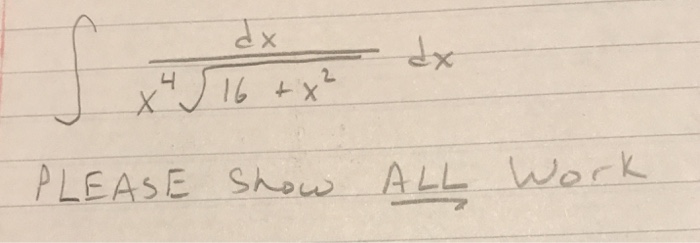 ∫ dx / (x⁴ √(16 + x²)) dx
PLEASE Show ALL Work